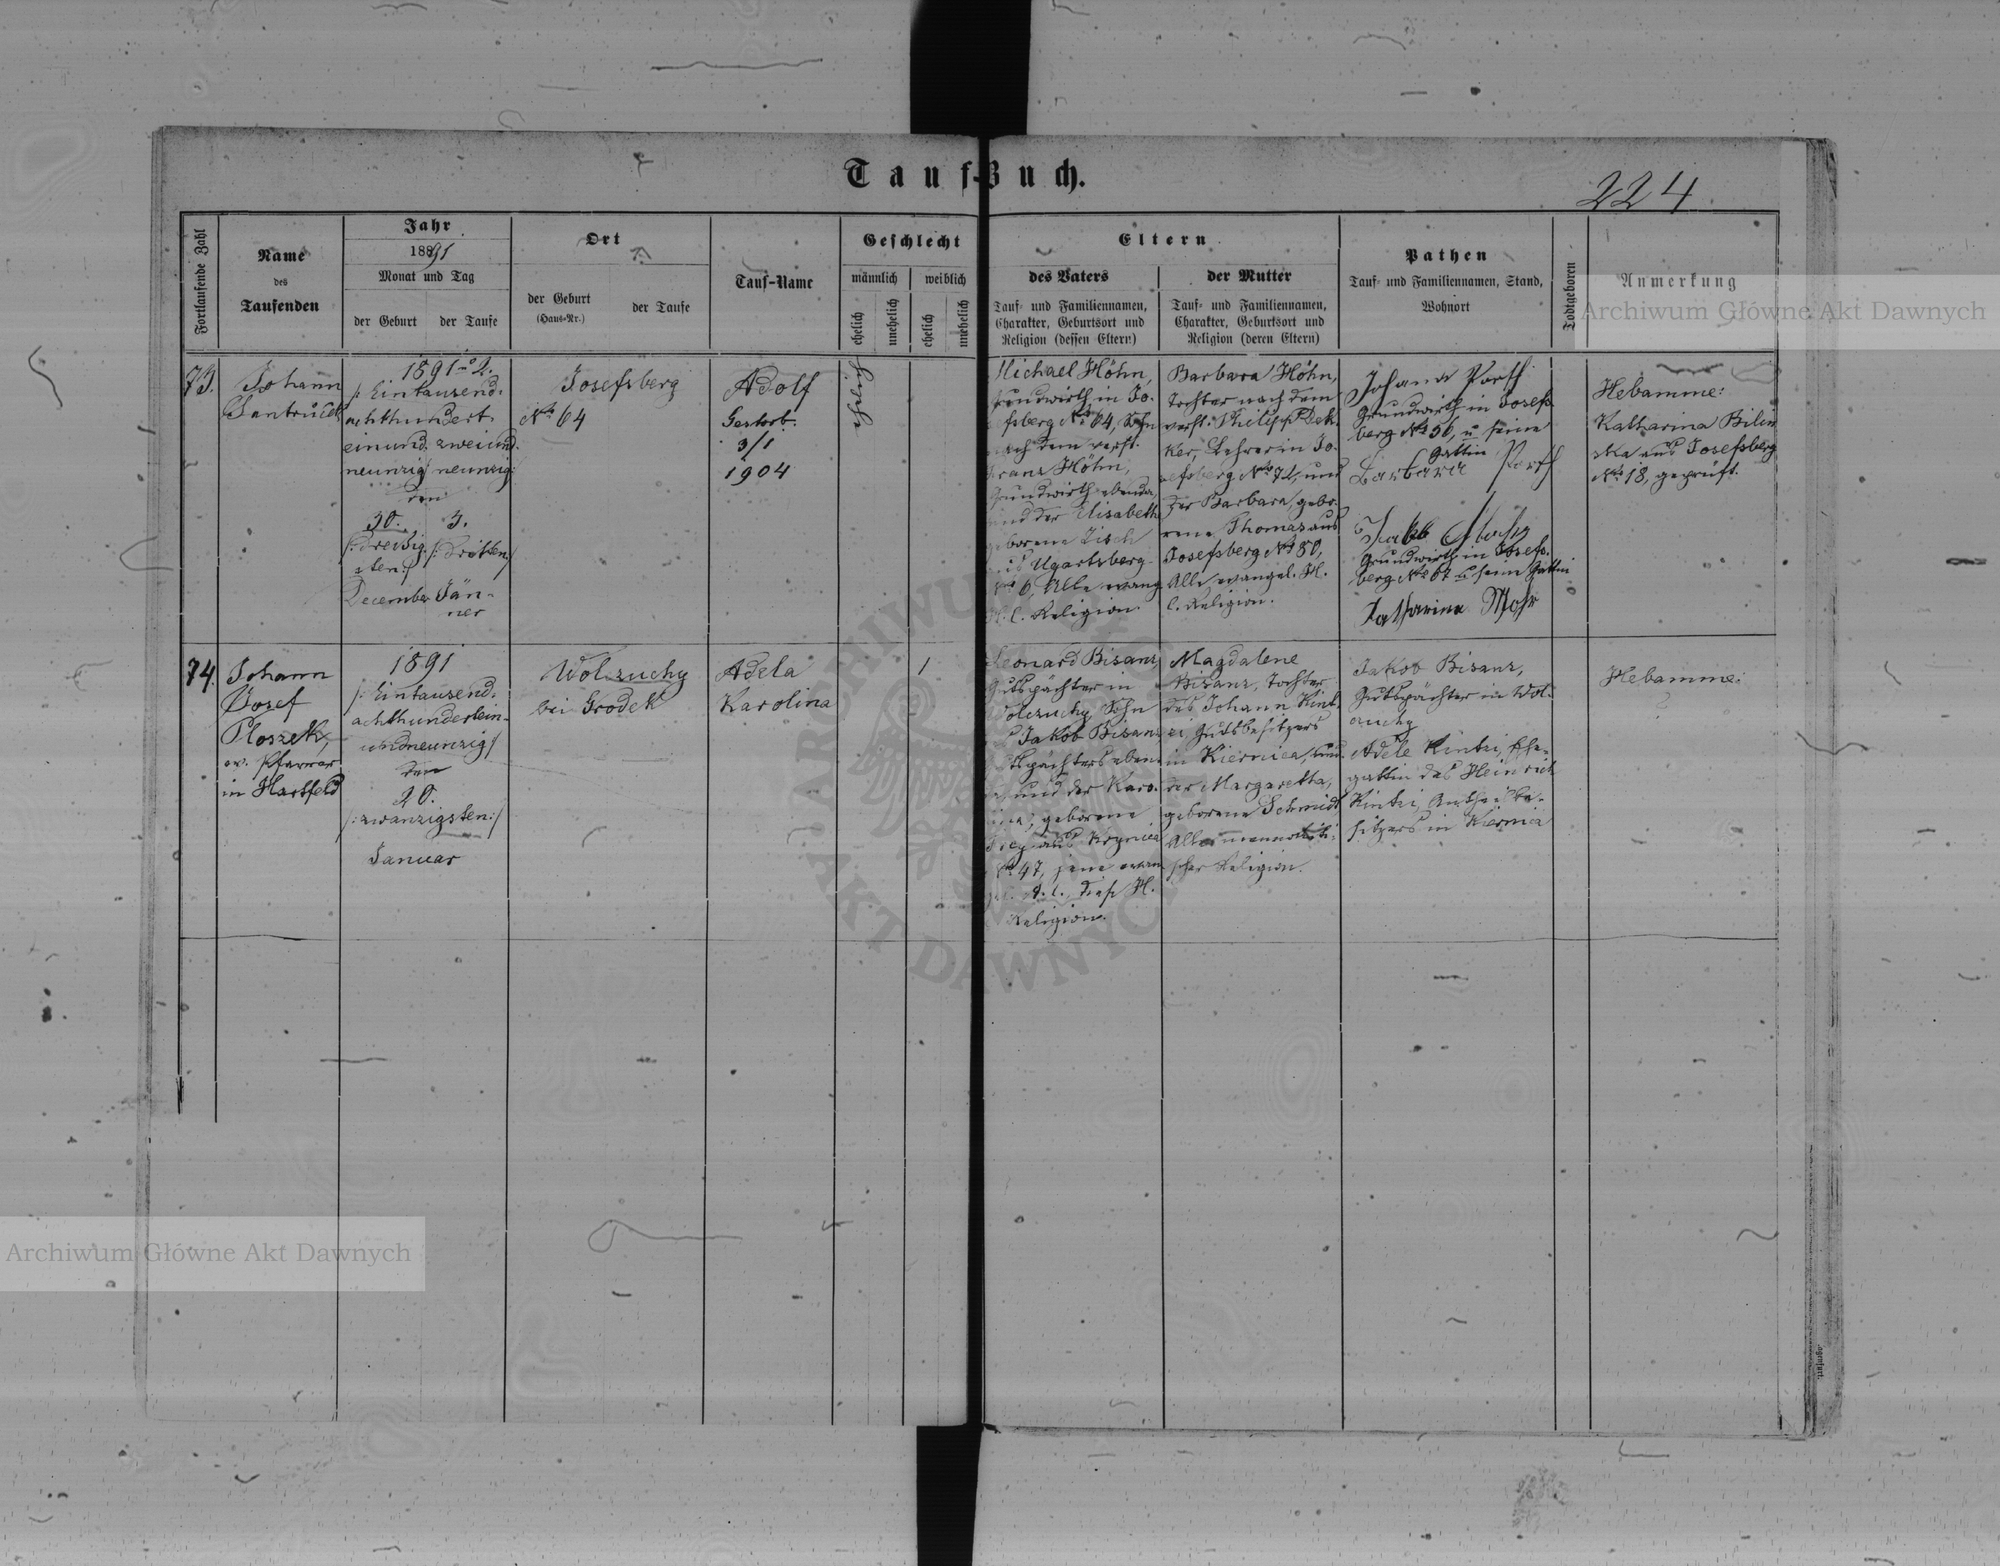 Tauf-Buch.
224
Fortlaufende Zahl
Name
des
Taufenden
Jahr
1891
Monat und Tag
der Geburt
der Taufe
Ort
der Geburt
(Haus-Nr.)
der Taufe
Tauf-Name
Geschlecht
männlich
weiblich
ehelich
unehelich
ehelich
unehelich
Eltern
des Vaters
Tauf- und Familiennamen,
Charakter, Geburtsort und
Religion (dessen Eltern)
der Mutter
Tauf- und Familiennamen,
Charakter, Geburtsort und
Religion (deren Eltern)
Pathen
Tauf- und Familiennamen, Stand,
Wohnort
Todtgeboren
Anmerkung
73.
Johann
1891 2.
/: Eintausend-
achthundert
einund zweiund-
neunzig/ neunzig:/
den
30. 3.
/:dreißig- /:dritten:/
sten:/
December Jän-
ner
Josefsberg
No 64
Adolf
Gestorb.
3/1
1904
ehelich
Michael Höhn,
Grundwirth in Jo-
sefsberg No 64, Sohn
nach dem verst.
Franz Höhn,
Grundwirth ebenda,
und der Elisabeth
geborene
aus Ugartsberg
No 6, Alle evang
H. C. Religion.
Barbara Höhn,
Tochter nach dem
verst. Philipp Dek-
ker, Lehrer in Jo-
sefsberg No 72, und
der Barbara, gebo-
rene Thomas aus
Josefsberg No 80,
Alle evangel. H.
C. Religion.
Johann Porth
Grundwirth in Josefs-
berg No 56, u seine
Gattin
Barbara Porth
Jakob
Grundwirth in Josefs-
berg No 67 u sein Gattin
Katharina Mohr
Hebamme:
Katharina Bilin
ska aus Josefsberg
No 18, geprüft.
74.
Johann
Josef
Ploszek,
ev. Pfarrer
in Hartfeld
1891
/: Eintausend-
achthundertein-
undneunzig/
den
20.
/:zwanzigsten:/
Januar
Wolczuchy
bei Grodek
Adela
Karolina
1
Leonard Bisanz,
Gutspächter in
Wolczuchy Sohn
des Jakob Bisanz
Gutspächters eben-
da, und der Karo-
lina, geborene
aus
No 47, jene evan
gel. A. C., diese M.
Religion.
Magdalene
Bisanz, Tochter
des Johann Kint-
zi, Gutsbesitzers
in Kiernica, und
der Margaretha,
geborene Schmidt,
Alle mennoniti-
scher Religion.
Jakob Bisanz,
Gutspächter in Wol-
czuchy
Adele Kintzi, Ehe-
gattin des Heinrich
Kintzi, Antheilbe-
sitzers in
Hebamme:
?
Archiwum Główne Akt Dawnych
Archiwum Główne Akt Dawnych
ARCHIWUM
AKT DAWNYCH